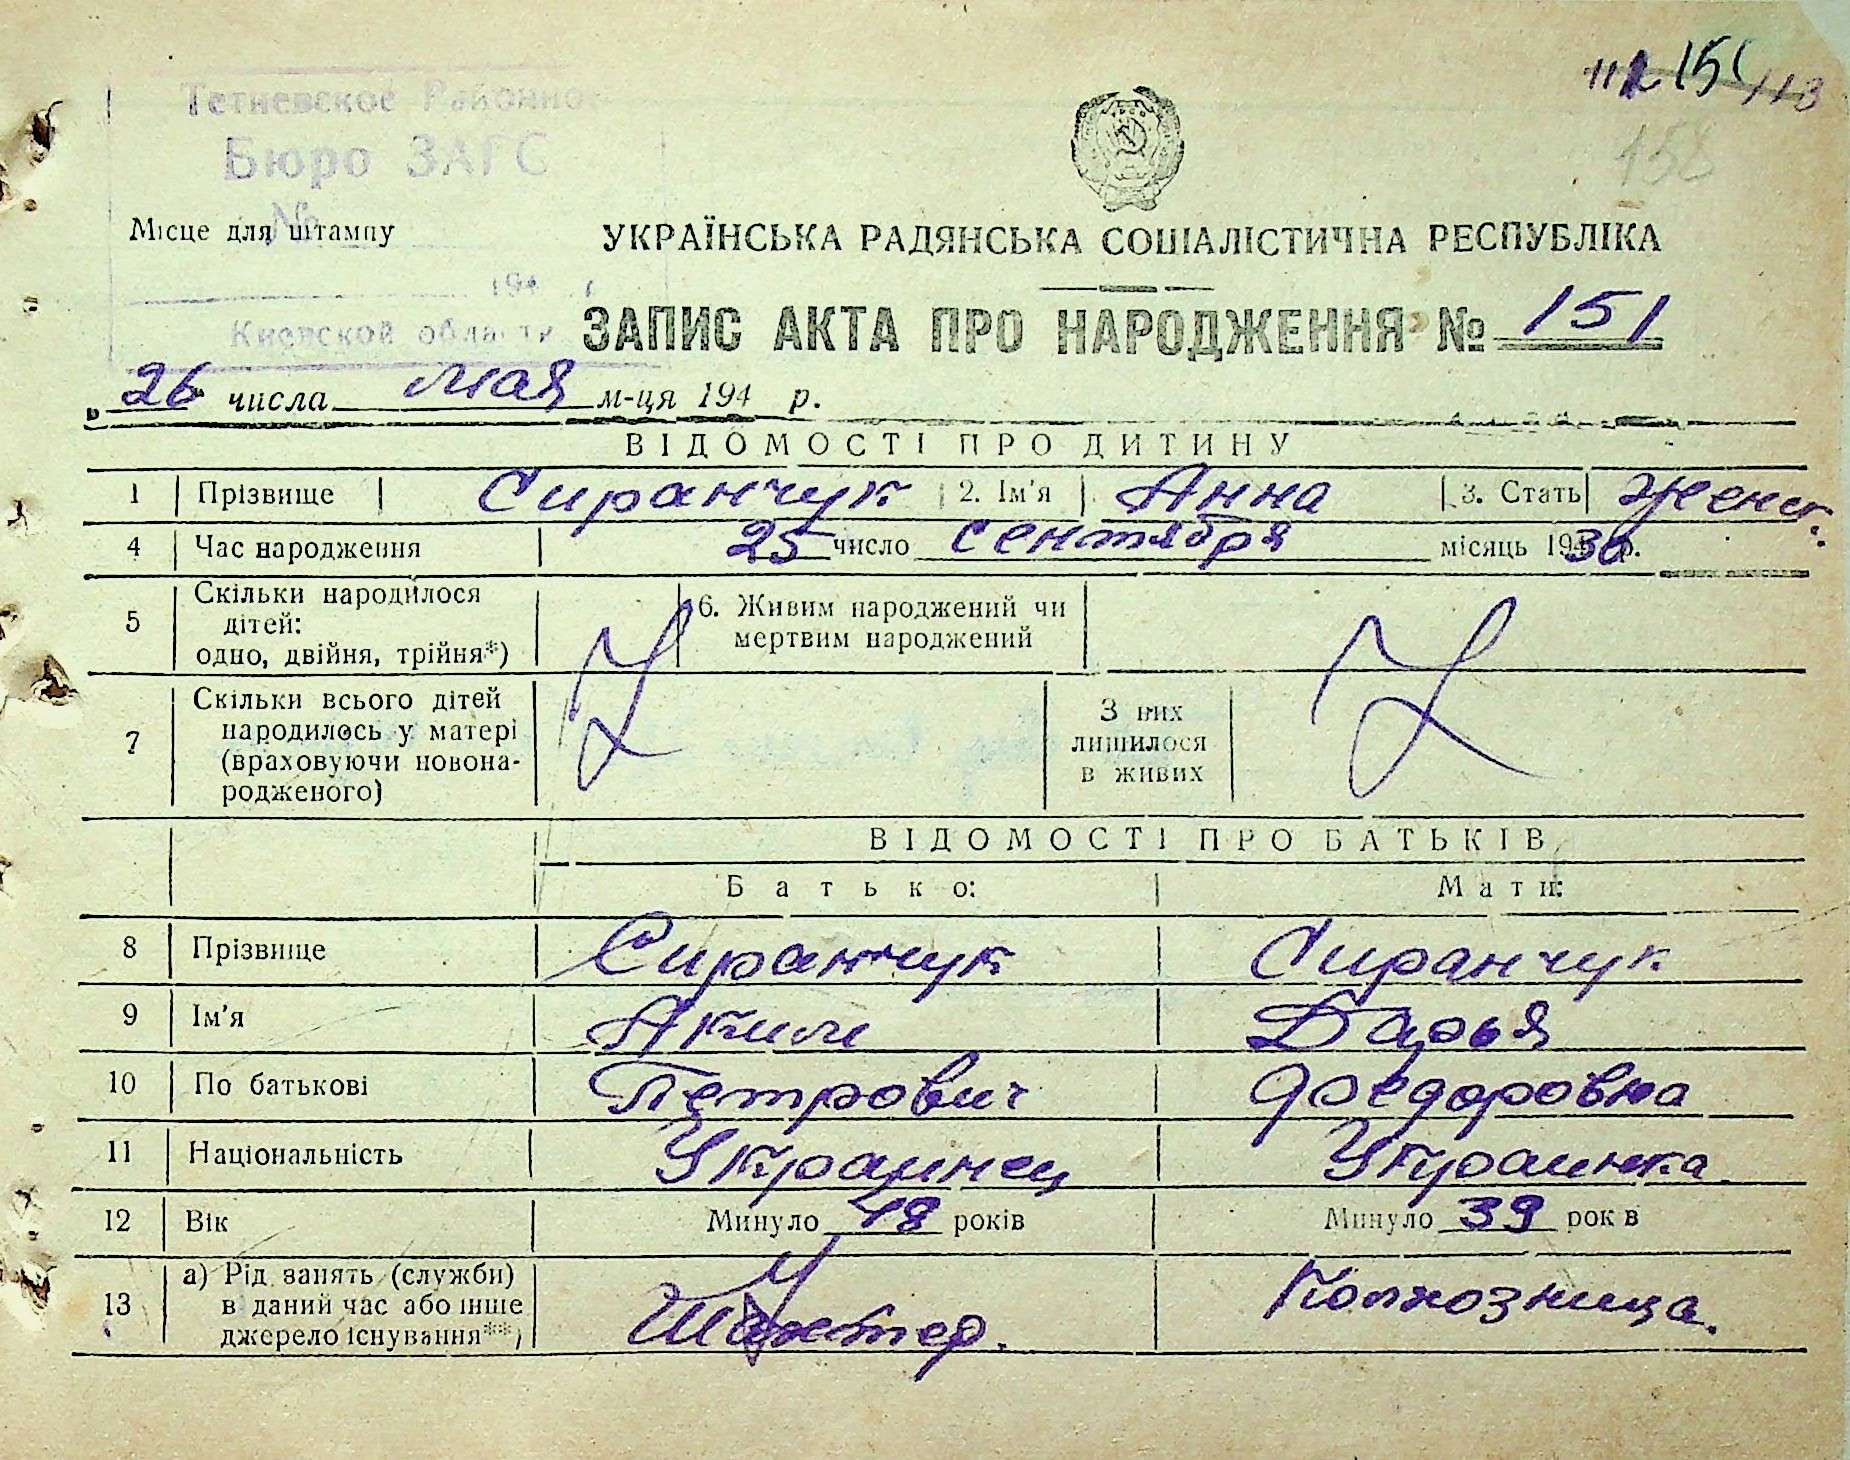 151
158
Тетиевское Районное
Бюро ЗАГС
№
Місце для штампу
194 г.
Киевской области
УКРАЇНСЬКА РАДЯНСЬКА СОЦІАЛІСТИЧНА РЕСПУБЛІКА
ЗАПИС АКТА ПРО НАРОДЖЕННЯ № 151
„ 26 числа мая м-ця 194 р.
ВІДОМОСТІ ПРО ДИТИНУ
1 Прізвище Сиранчук 2. Ім'я Анна 3. Стать Женск.
4 Час народження 25 число сентября місяць 19430 р.
5 Скільки народилося
дітей:
одно, двійня, трійня*)
6. Живим народжений чи
мертвим народжений
7 Скільки всього дітей
народилось у матері
(враховуючи новона-
родженого)
З них
лишилося
в живих
ВІДОМОСТІ ПРО БАТЬКІВ
Батько: Мати:
8 Прізвище Сиранчук Сиранчук
9 Ім'я Аким Дарья
10 По батькові Петрович Федоровна
11 Національність Украинец Украинка
12 Вік Минуло 48 років Минуло 39 років
13 а) Рід занять (служби)
в даний час або інше
джерело існування**)
Шахтер. Колхозница.